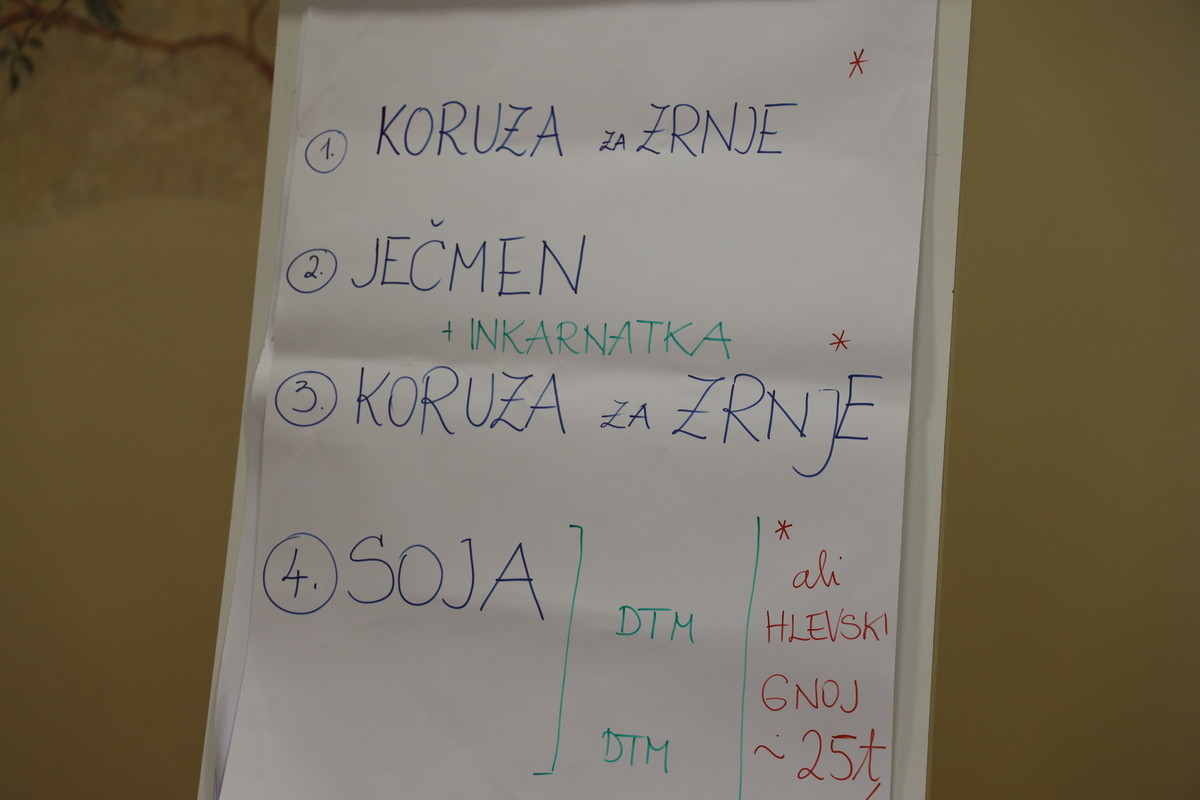 *
1. KORUZA ZA ZRNJE
2. JEČMEN
+ INKARNATKA
*
3. KORUZA ZA ZRNJE
4. SOJA
DTM
DTM
*
ali
HLEVSKI
GNOJ
~ 25t